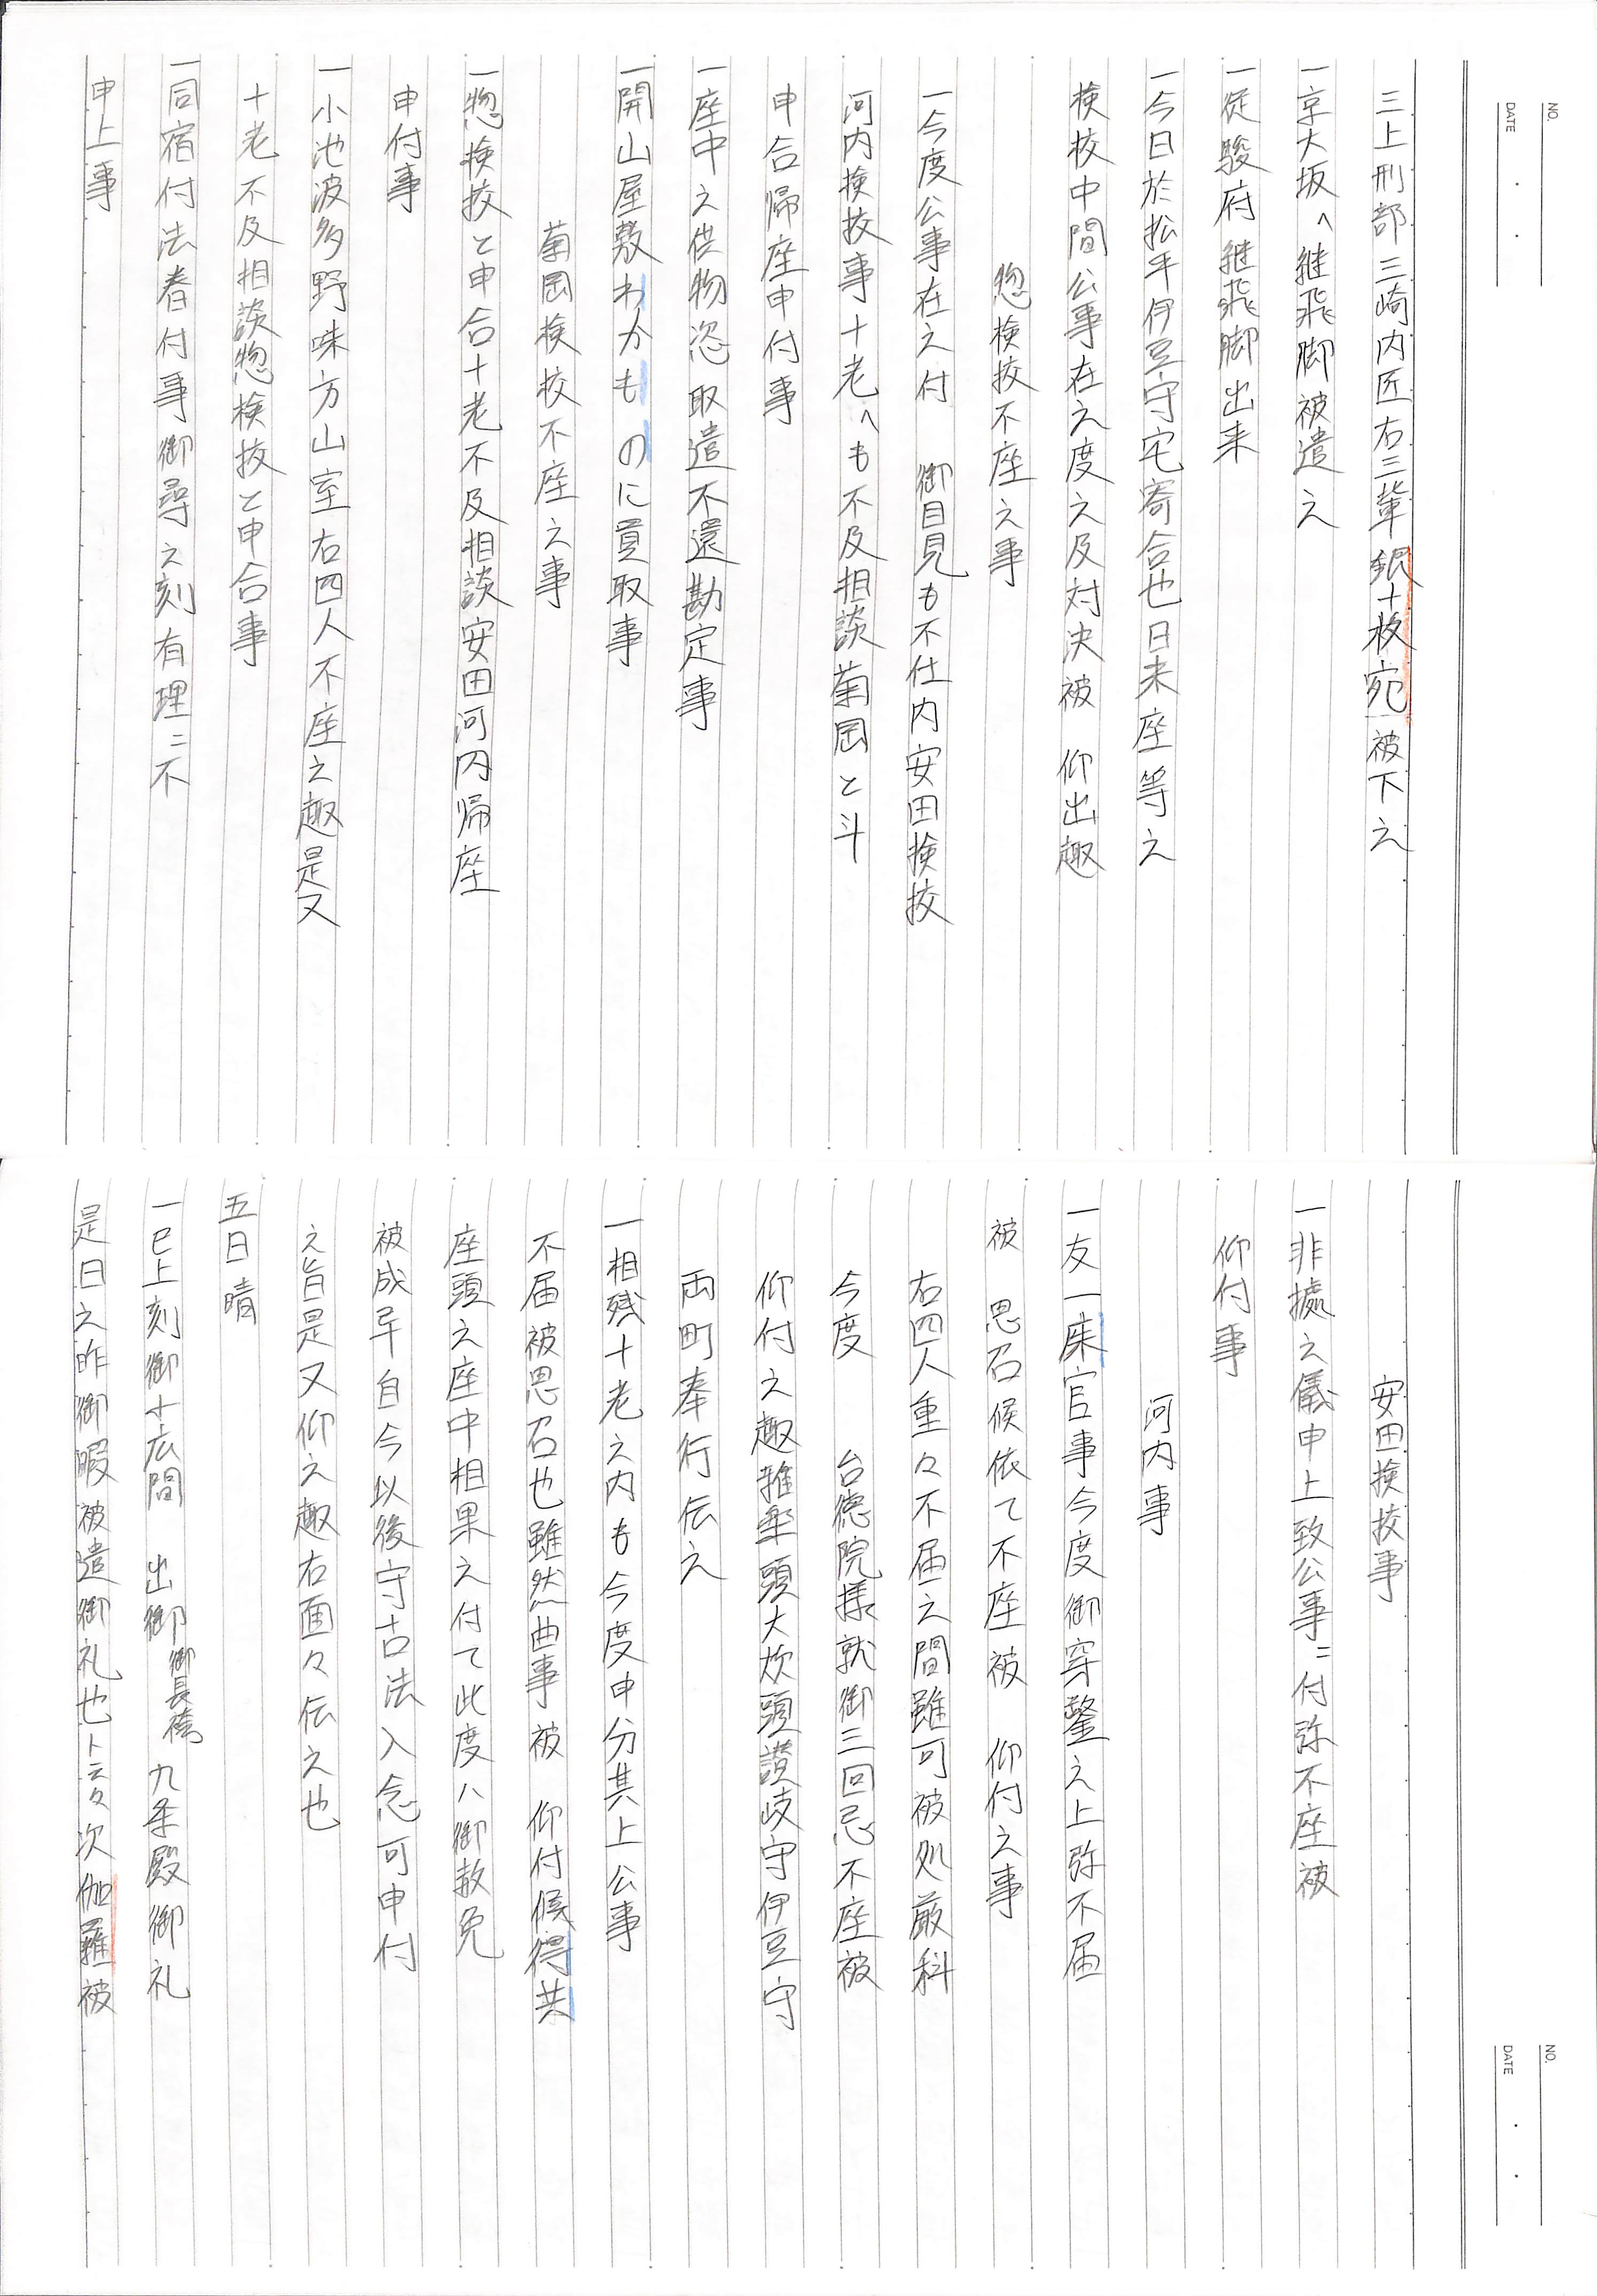 NO.
DATE
三上刑部三崎内匠右三輩銀十枚宛被下之
一京大坂へ継飛脚被遣之
一従駿府継飛脚出来
一今日於松平伊豆守宅寄合也日来座等之
検校中間公事在之度々及対決被 仰出趣
惣検校不座之事
一今度公事在之付 御目見も不仕内安田検校
河内検校事十老へも不及相談菊岡と斗
申合帰座申付事
一座中之供物恣取遣不還勘定事
一開山屋敷わかものに買取事
菊岡検校不座之事
一惣検校と申合十老不及相談安田河内帰座
申付事
一小池波多野味方山室右四人不座之趣是又
十老不及相談惣検校と申合事
一同宿付法春付事御尋之刻有理ニ不
申上事
NO.
DATE
安田検校事
一非拠之儀申上致公事ニ付弥不座被
仰付事
河内事
一友一床官事今度御穿鑿之上弥不届
被 思召候依て不座被 仰付之事
右四人重々不届之間雖可被処厳科
今度 台徳院様就御三回忌不座被
仰付之趣雅楽頭大炊頭讃岐守伊豆守
両町奉行伝之
一相残十老之内も今度申分共上公事
不届被思召也雖然曲事被 仰付候得共
座頭之座中相果之付て此度ハ御赦免
被成早自今以後守古法入念可申付
之旨是又仰之趣右面々伝之也
五日晴
一巳上刻御十広間 出御御長袴 九条殿御礼
是日之昨御暇被遣御礼也ト云々次伽羅被